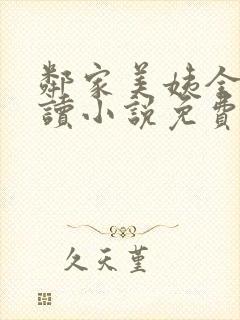 鄰家美姨全
讀小說免費
久天堇